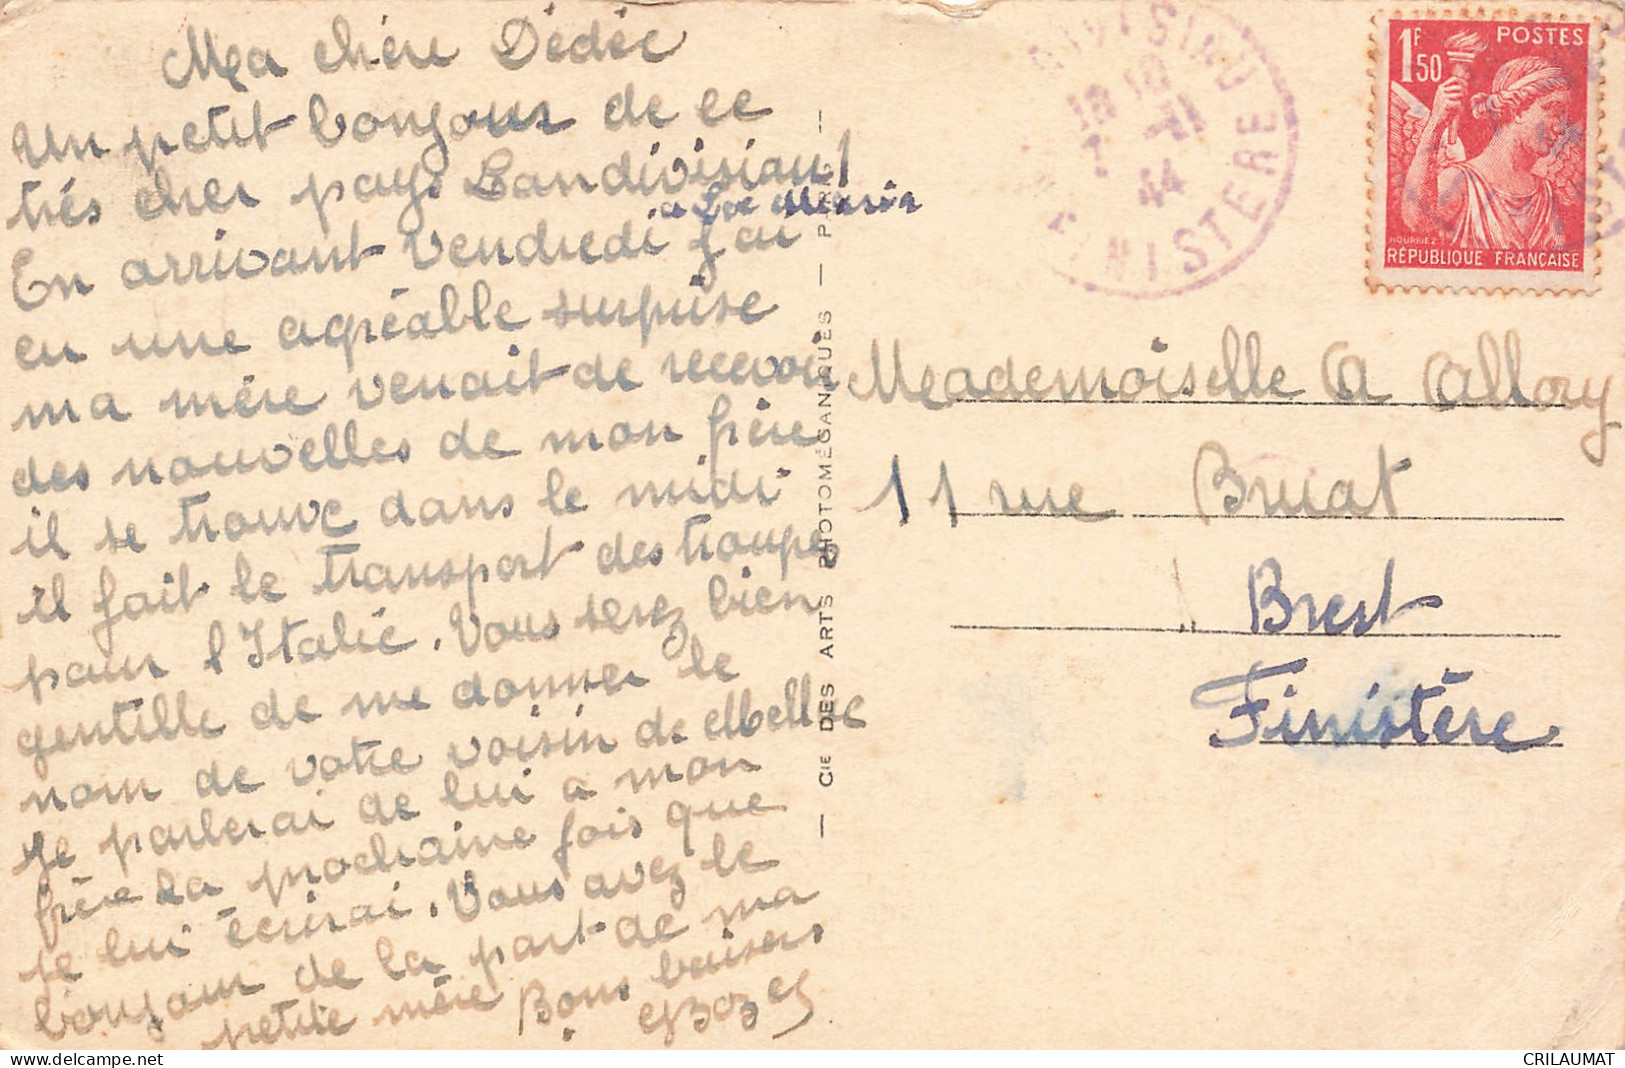 Ma chère Dédée
Un petit bonjour de ce
très cher pays Landivisiau!
En arrivant Vendredi j'ai
a Loc Maria
eu une agréable surprise
ma mère venait de recevoir
des nouvelles de mon frère
il se trouve dans le midi
il fait le transport des troupes
pour l'Italie. Vous serez bien
gentille de me donner le
nom de votre voisin de
Je parlerai de lui a mon
frère la prochaine fois que
je lui écrirai. Vous avez le
bonjour de la part de ma
petite mère Bons baisers
— CIE DES ARTS PHOTOMÉCANIQUES — PARIS —
DIVISIAU
18 10
7 - 11
44
FINISTERE
1F50
POSTES
HOURRIEZ
RÉPUBLIQUE FRANÇAISE
Mademoiselle A Allory
11 rue Bruat
Brest
Finistère
CRILAUMAT